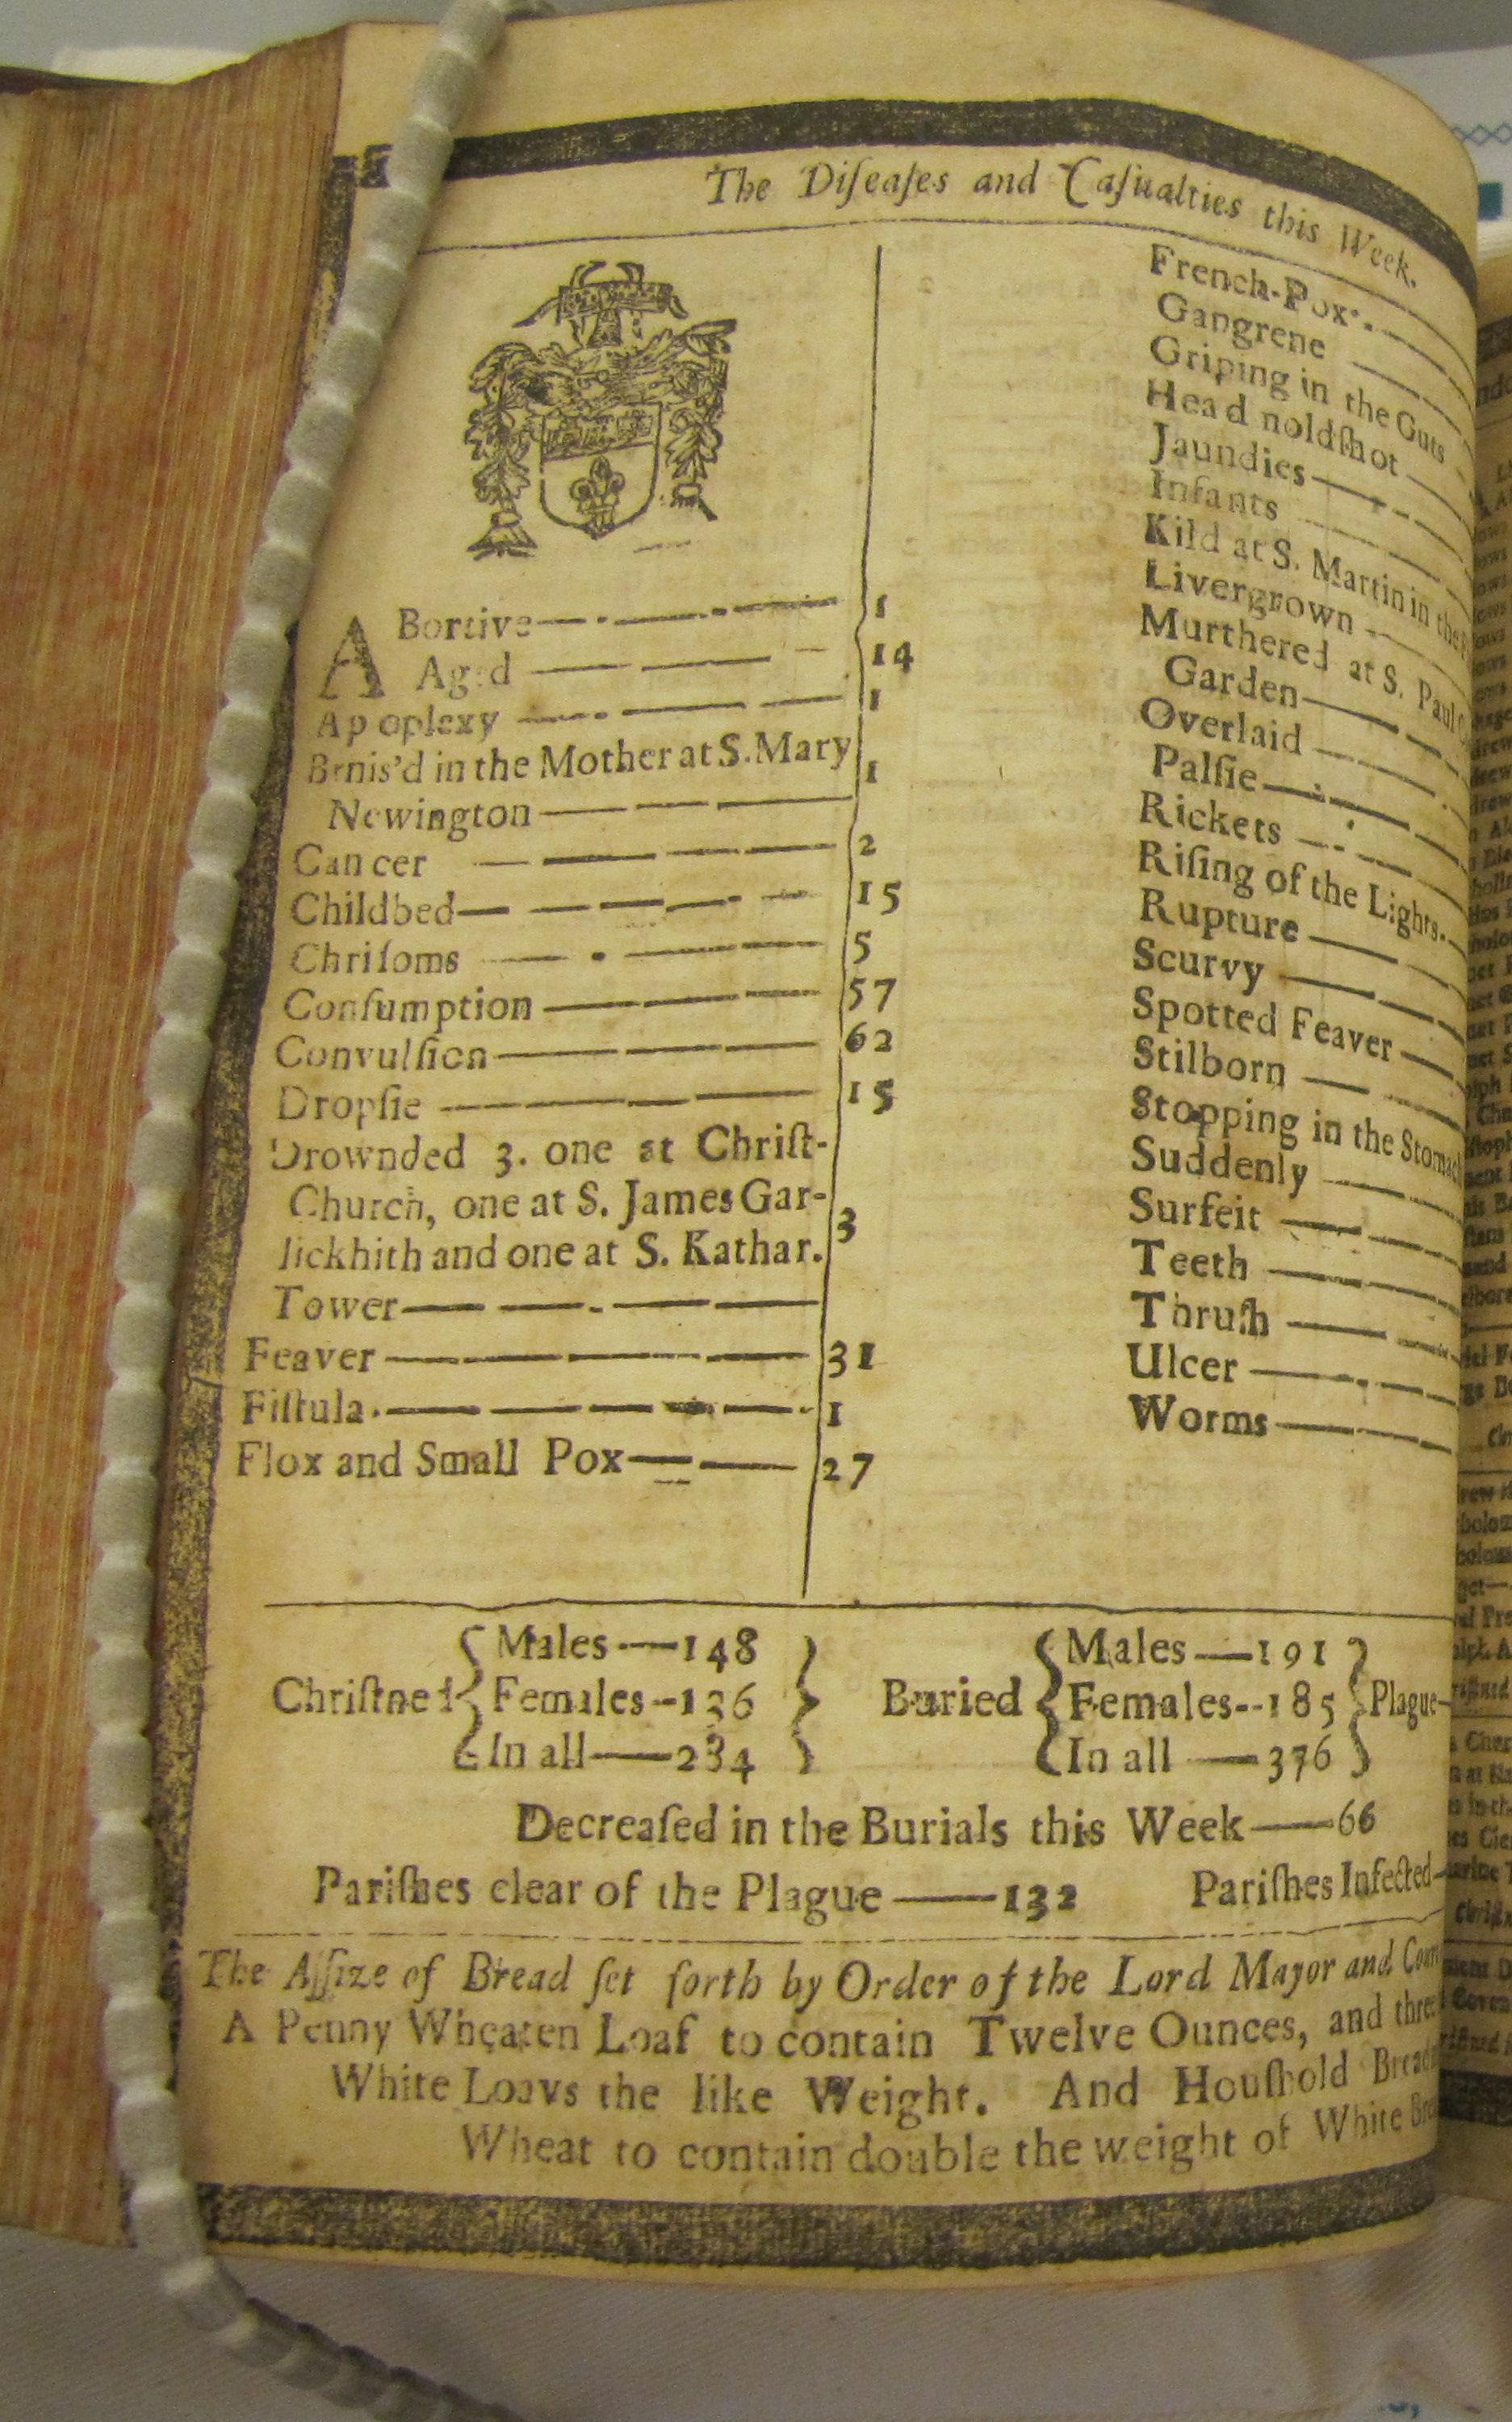 The Diſeaſes and Caſualties this Week.
ABortive 1
Aged 14
Apoplexy 1
Brnis'd in the Mother at S. Mary
Newington 1
Cancer 2
Childbed 15
Chriſoms 5
Conſumption 57
Convulſion 62
Dropſie 15
Drownded 3. one at Chriſt-
Church, one at S. James Gar-
lickhith and one at S. Kathar. 3
Tower
Feaver 31
Fiſtula 1
Flox and Small Pox 27
French-Pox
Gangrene
Griping in the Guts
Head noldſhot
Jaundies
Infants
Kild at S. Martin in the
Livergrown
Murthered at S. Paul
Garden
Overlaid
Palſie
Rickets
Riſing of the Lights.
Rupture
Scurvy
Spotted Feaver
Stilborn
Stopping in the Stomach
Suddenly
Surfeit
Teeth
Thruſh
Ulcer
Worms
Chriſtned { Males 148 } Buried { Males 191 }
Females 136 Females 185 Plague
In all 284 In all 376
Decreaſed in the Burials this Week 66
Pariſhes clear of the Plague 132 Pariſhes Infected
The Aſſize of Bread ſet forth by Order of the Lord Mayor and
A Penny Wheaten Loaf to contain Twelve Ounces, and three
White Loavs the like Weight. And Houſhold Bread
Wheat to contain double the weight of White